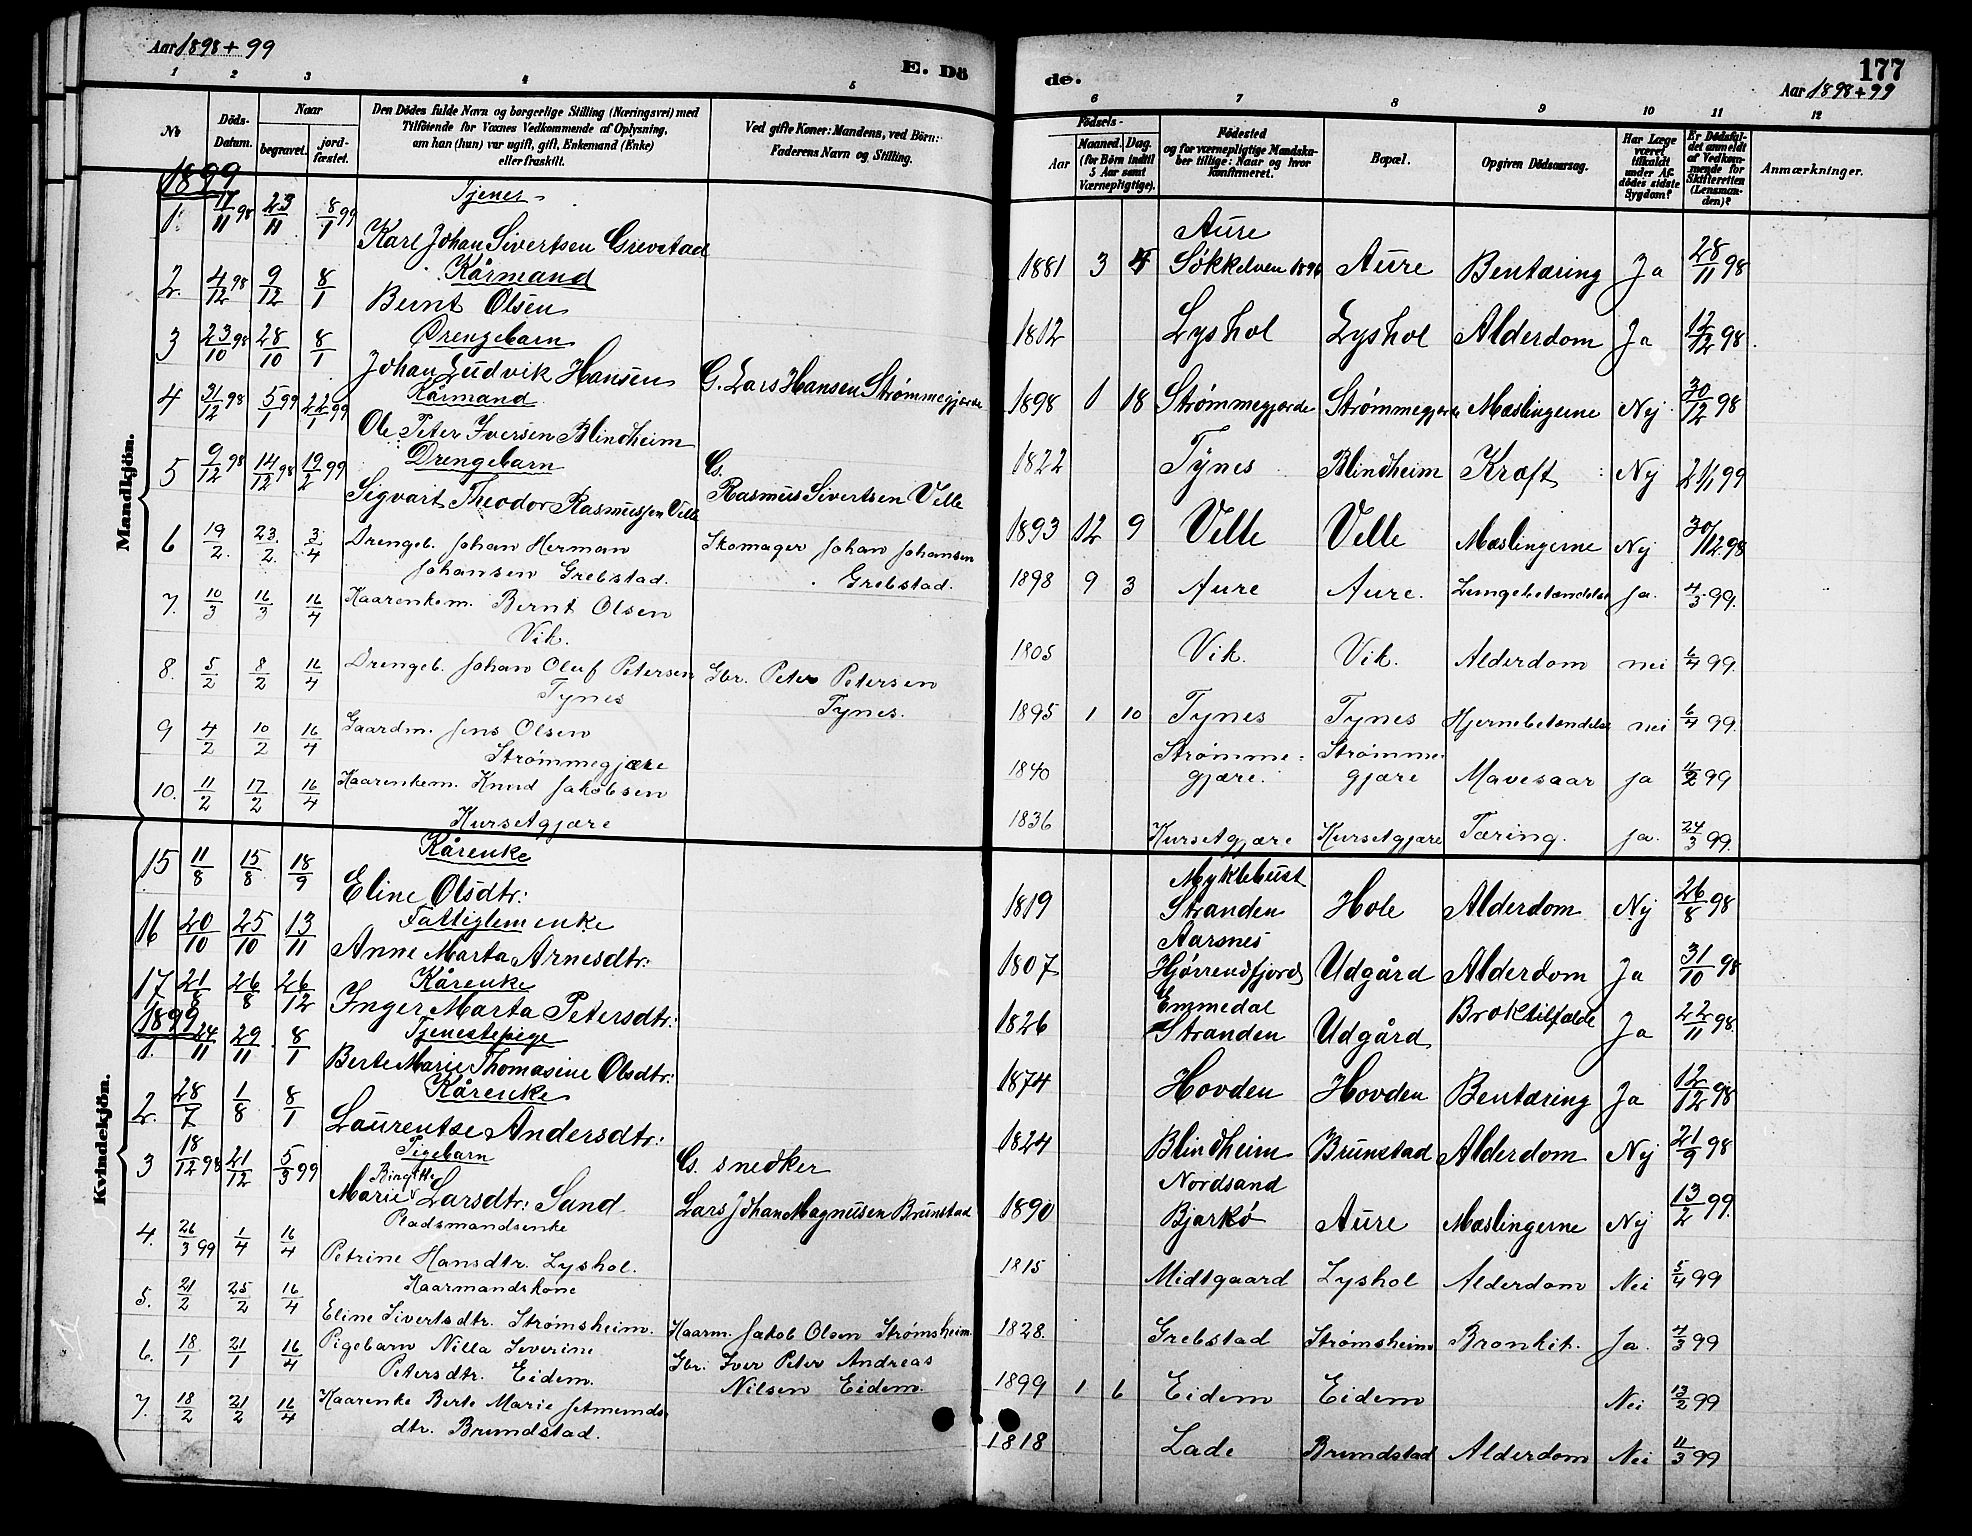 Aar 1898 + 99
E. Dö
de.
177
Aar 1898 + 99
1 2 3 4 5 6 7 8 9 10 11 12
No
Döds-Datum.
Naar
begravet.
jord-fæstet.
Den Dödes fulde Navn og borgerlige Stilling (Næringsvei) med
Tilföiende for Voxnes Vedkommende af Oplysning,
om han (hun) var ugift, gift, Enkemand (Enke)
eller fraskilt.
Ved gifte Koner: Mandens, ved Börn:
Faderens Navn og Stilling.
Födsels-
Aar
Maaned. Dag.
(for Börn indtil
5 Aar samt
Værnepligtige).
Födested
og for værnepligtige Mandska-
ber tillige: Naar og hvor
konfirmeret.
Bopæl.
Opgiven Dödsaarsag.
Har Læge
været
tilkaldt
under Af-
dödes sidste
Sygdom?
Er Dödsfal-
det anmeldt
af Vedkom-
mende for
Skifteretten
(Lensman-
den)?
Anmærkninger.
Mandkjön.
1899
1. 17/11 98 23/11 8/1 99 Tjener
Karl Johan Sivertsen Grevstad 1881 3 4 Aure Søkkelven Aure Bentæring Ja 28/11 98
2. 4/12 98 9/12 8/1 Kårmand
Bernt Olsen 1812 Lyshol Lyshol Alderdom Ja 12/12 98.
3 23/10 98 28/10 8/1 Drengebarn
Johan Ludvik Hansen G. Lars Hansen Strømmegjerde 1898 1 18 Strømmegjerde Strømmegjerde Mæslingerne Nej 30/12 98
4 31/12 98 5/1 99 22/1 99 Kårmand
Ole Peter Iversen Blindheim 1822 Tynes Blindheim Kræft Nej 21/1 99
5 9/12 98 14/12 98 19/2 99 Drengebarn
Sigvart Theodor Rasmussen Velle G. Rasmus Sivertsen Velle 1893 12 9 Velle Velle Mæslingerne Nej 30/12 98
6 19/2. 23./2. 3/4 Drengeb. Johan Herman
Johansen Grebstad. Skomager Johan Johansen Grebstad. 1898 9 3 Aure Aure. Lungebetændelse Ja. 4/3 99.
7. 10/3 16/3 16/4 Kaarenkem. Bernt Olsen
Vik. 1805 Vik. Vik. Alderdom nei 6/4 99.
8. 5/2 8/2 16/4 Drengeb. Johan Oluf Petersen
Tynes Gbr. Peter Petersen Tynes. 1895 1 10 Tynes Tynes Hjernebetændelse nei 6/4 99.
9 4/2 10/2 16/4 Gaardm. Jens Olsen
Strømmegjære 1840 Strømmegjære. Strømmegjære Mavesaar ja 11/2 99
10. 11/2 17/2 16/4 Kaarenkem. Knud Jakobsen
Kursetgjære 1836 Kursetgjære Kursetgjære Tæring. ja. 24/3 99.
Kvindekjön.
15 11/8 15/8 18/9 Kårenke
Eline Olsdtr: 1819 Myklebust Stranden Hole Alderdom Nej 26/8 98
16 20/10 25/10 13/11 Fattiglem enke
Anne Marta Arnesdtr: 1807 Aarsnes Hjørrendfjord Udgård Alderdom Ja 31/10 98
17 21/8 26/8 26/12 Kårenke
Inger Marta Petersdtr: 1826 Emmedal Stranden Udgård Broktilfælde Ja 22/11 98.
1899
1. 24/11 29/11 8/1 Tjenestepige
Berte Marie Thomasine Olsdtr: 1874 Hovden Hovden Bentæring Ja 12/12 98
2. 28/7 1/8 8/1 Kårenke
Laurentse Andersdtr: 1824 Blindheim Brunstad Alderdom Nej 21/9 98
3 18/12 98 21/12 5/3 99 Pigebarn
Marie Birgitte Larsdtr: Sand G. snedker Lars Johan Magnusen Brunstad 1890 Nordsand Bjarkö Aure Mæslingerne Nej 13/2 99.
4. 26/3 99 1/4 16/4 Raadsmandsenke
Petrine Hansdtr. Lyshol. 1815 Midtgaard Lyshol Alderdom Nei 5/4 99
5. 21/2 25/2 16/4 Kaarmandskone
Eline Sivertsdtr. Strømsheim. Kaarm. Jakob Olsen Strømsheim. 1828. Grebstad Strømsheim Bronkit. Ja. 4/3 99
6. 18/1 21/1 16/4 Pigebarn Nilla Severine
Petersdtr. Eidem. Gbr. Iver Peter Andreas Nilsen Eidem. 1899 1 6 Eidem Eidem Nei 13/2 99
7. 18/2 21/2 16/4 Kaarenke Berte Marie
dtr. Brundstad. 1818 Lade Brundstad Alderdom Nei 11/3 99